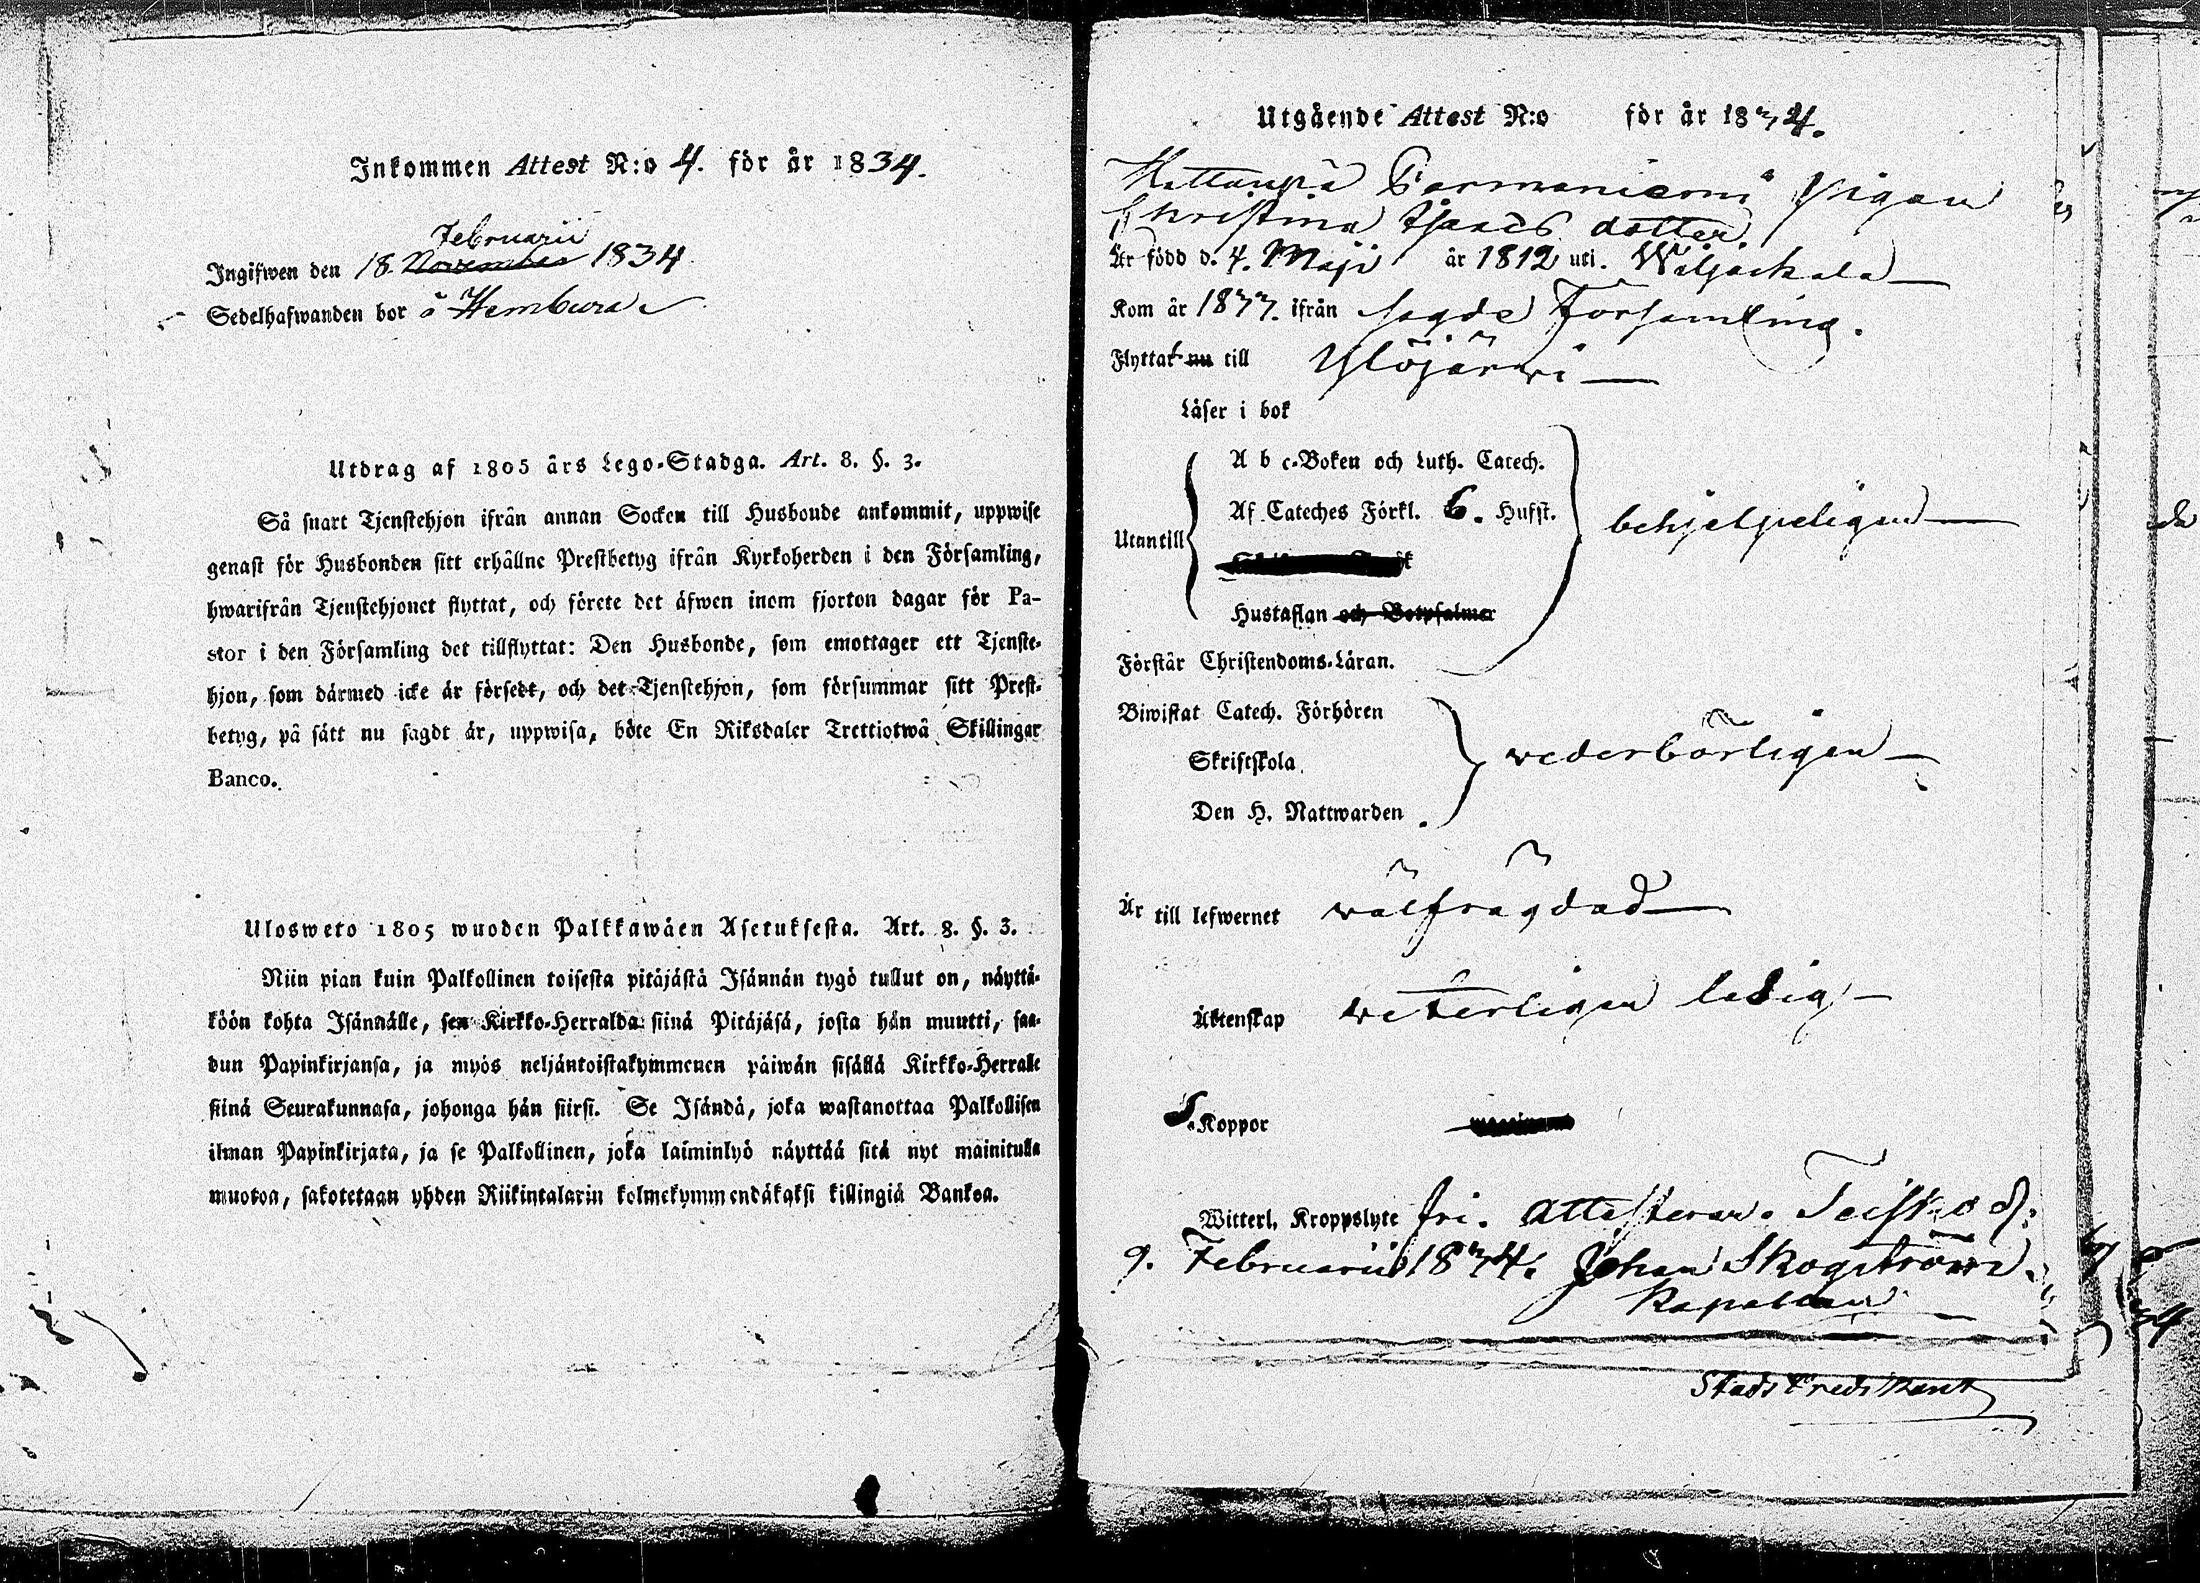 Inkommen Attest N:o 4. för år 1834.
Februarii
Ingifwen den 18 November 1834
Sedelhafwanden bor å
Utdrag af 1805 års Lego-Stadga. Art. 8. §. 3.
Så snart Tjenstehjon ifrån annan Socken till Husbonde ankommit, uppwise
genast för Husbonden sitt erhållne Prestbetyg ifrån Kyrkoherden i den Församling,
hwarifrån Tjenstehjonet flyttat, och förete det äfwen inom fjorton dagar för Pa-
stor i den Församling det tillflyttat: Den Husbonde, som emottager ett Tjenste-
hjon, som därmed icke är försedt, och det Tjenstehjon, som försummar sitt Prest-
betyg, på sätt nu sagdt är, uppwisa, böte En Riksdaler Trettiotwå Skillingar
Banco.
Ulosweto 1805 wuoden Palkkawäen Asetuksesta. Art. 8. §. 3.
Niin pian kuin Palkollinen toisesta pitäjästä Isännän tygö tullut on, näyttä-
köön kohta Isännälle, sen Kirkko-Herralda siinä Pitäjäsä, josta hän muutti, saa-
dun Papinkirjansa, ja myös neljäntoistakymmenen päiwän sisällä Kirkko-Herralle
siinä Seurakunnasa, johonga hän siirsi. Se Isändä, joka wastanottaa Palkollisen
ilman Papinkirjata, ja se Palkollinen, joka laiminlyö näyttää sitä nyt mainitulla
muotoa, sakotetaan yhden Riikintalarin kolmekymmendäkaksi killingiä Bankoa.
Utgående Attest N:o för år 1834.
Pigan
Christina Isaacs dotter
Är född d. 4. Maji år 1812 uti. Wiljackala
Kom år 1833. ifrån sagde Församling.
Flyttat nu till Ylöjärwi
Läser i bok
A b c-Boken och Luth. Catech.
Af Cateches Förkl. 6. Hufst.
Utantill behjelpeligen
Hustaflan och Botpsalmer
Förstår Christendoms-Läran.
Biwistat Catech. Förhören
Skriftskola wederbörligen
Den H. Nattwarden.
Är till lefwernet wälfrägdad
Äktenskap weterligen ledig
Koppor
Witterl. Kroppslyte fri. Attesterar. Teisko d.
9. Februarii 1834. Johan Skogström.
Kapellan
Stads Predikant